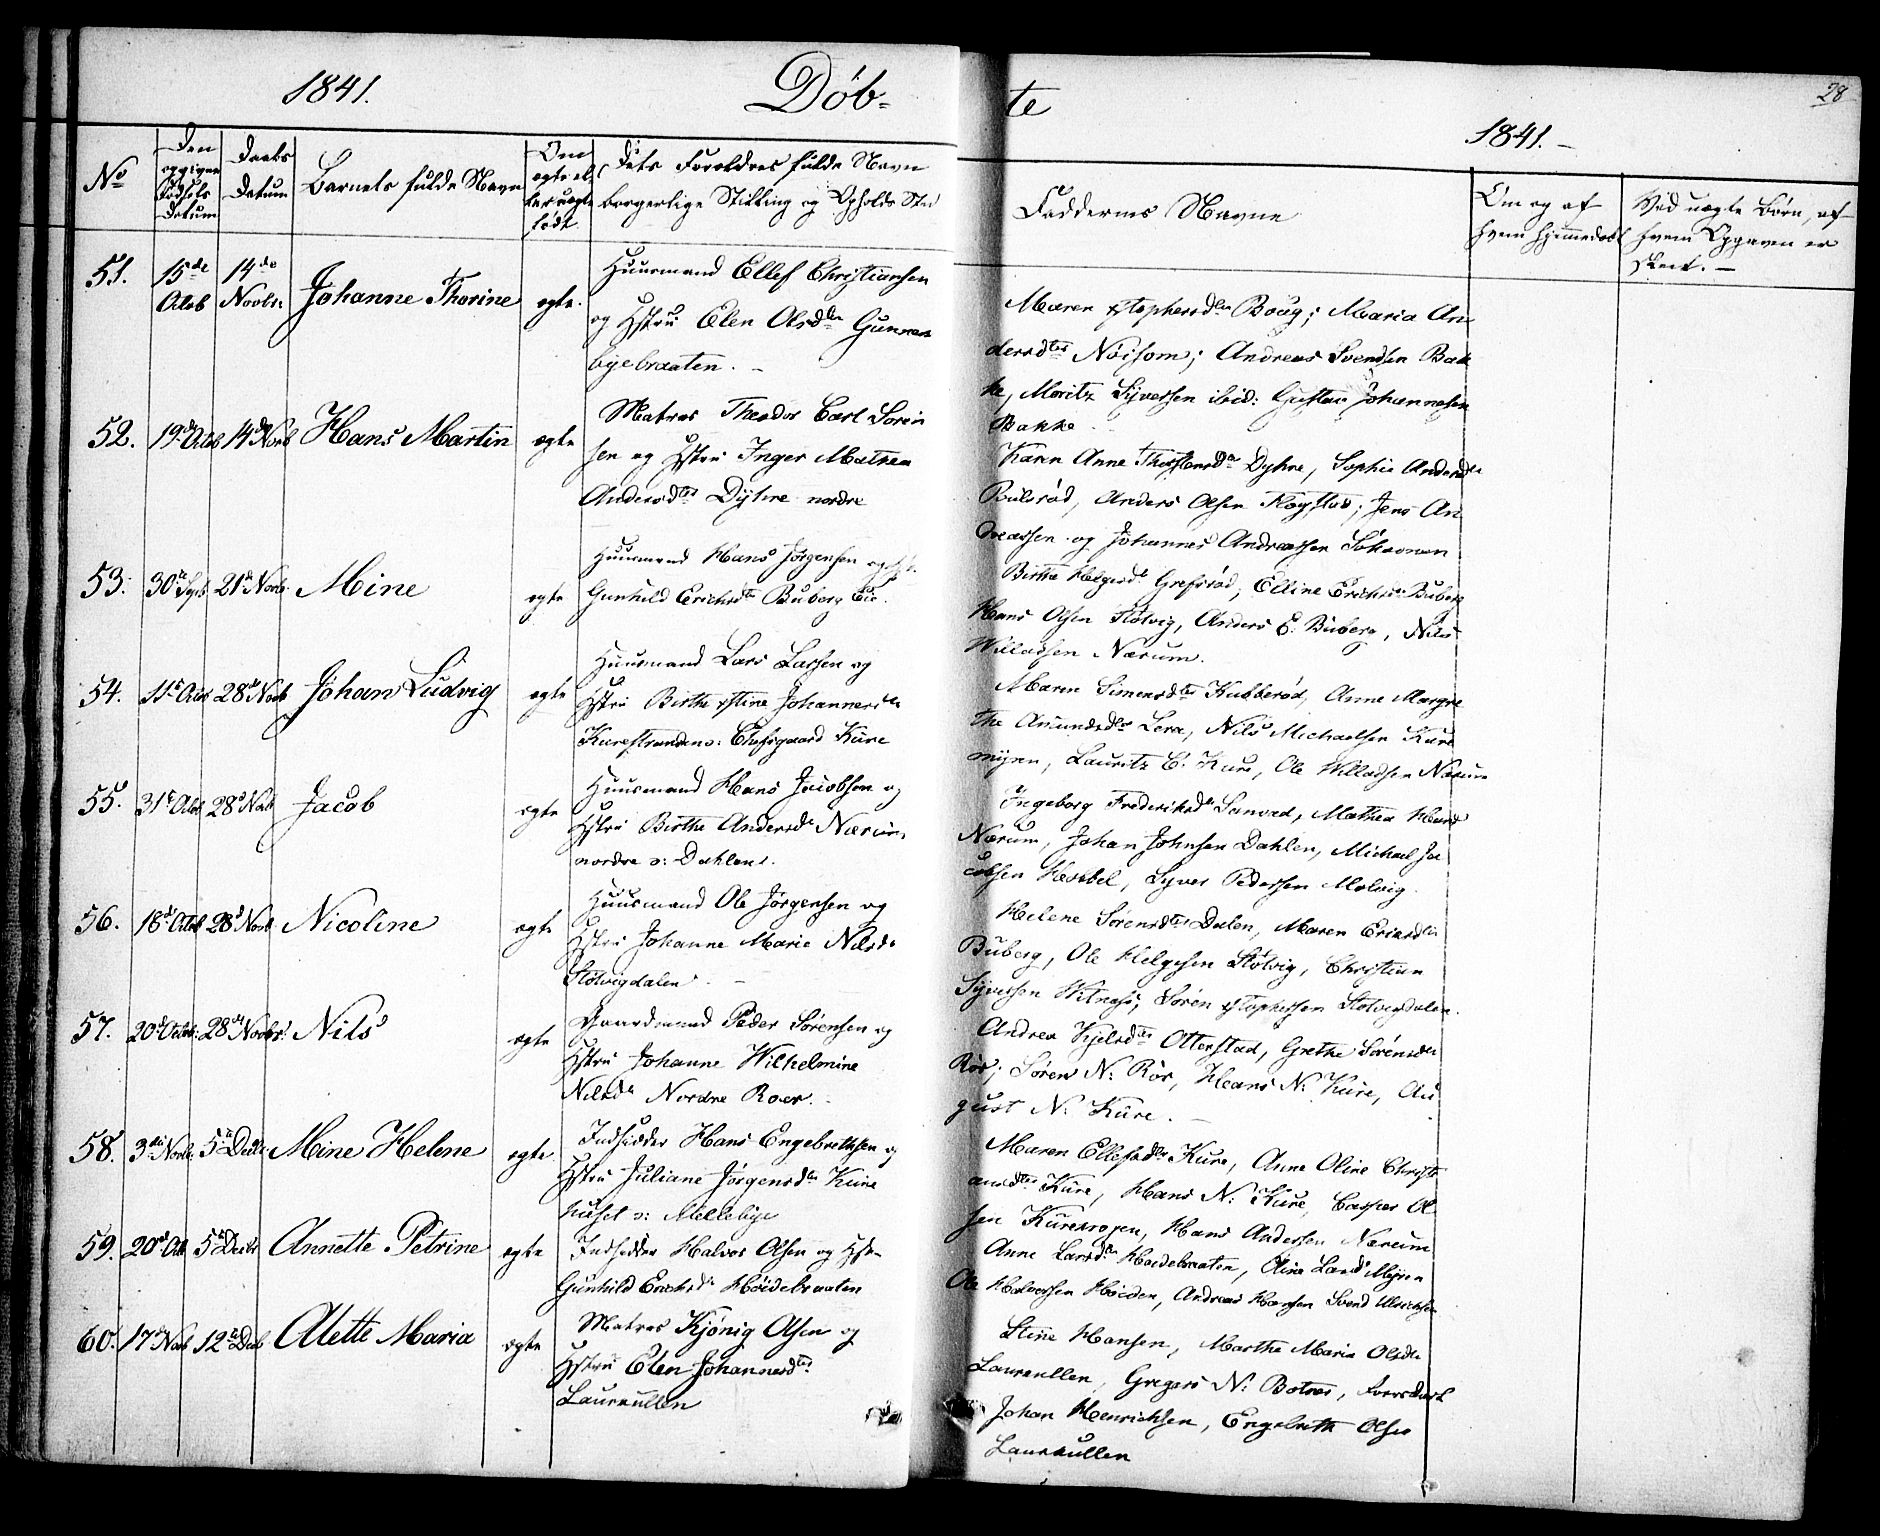 1841.
Döb-
te
28
1841.
No
Den opgivne Födsels Datum
Daabs Datum
Barnets fulde Navn
Om ægte eller uægte födt
Dets Forældres fulde Navn
borgerlige Stilling og Opholds Sted
Faddernes Navne
Om og af hvem hjemmedöbt
Ved uægte Börn, af
hvem Opgaven er
skeet.
51. 15de Octob 14de Novbr: Johanne Thorine ægte.
Huusmand Ellef Christiansen
og Hstru Elen Olsdtr Gunnars
byebraaten.
Maren Xstophersdtr Boug; Maria An
dersdter Nöisom; Andreas Svendsen Bak
ke, Moritz Syversen ibid: Gustav Johannesen
Bakke
52. 19de Octob 14de Novb Hans Martin ægte
Matros Theodor Carl Sören
sen og Hstru Inger Mathea
Andersdter Dyhre nordre
Karen Anne Thorstensdtr Dyhre, Sophie Andersdtr
Bulsröd, Anders Olsen Flogstad; Jens An
dreassen og Johannes Andreassen
53. 30te Sept 21de Novb Mine ægte
Huusmand Hans Jörgensen og Hst.
Gunhild Erichsdtr Buberg Eie.
Birthe Helgesdr Grefsröd, Elline Erichsdr Buberg
Hans Olsen Stötvig, Anders E. Buberg, Nils
Willadsen Nærum.
54. 11te Octob 28de Novb Johan Ludvig ægte
Huusmand Lars Larsen og
Hstru Birthe Xstine Johannesdtr
Kurestranden o: Kure
Maren Simensdter Kubberöd, Anne Margre
the Amundsdtr Lera, Nils Michaelsen Kure
myren, Lauritz E. Kure, Ole Willadsen Nærum
55. 31te Octob 28de Novb Jacob ægte
Huusmand Hans Jacobsen og
Hstru Birthe Andersdr Nærum
nordre o: Dahlen.
Ingeborg Frederiksdr, Mathea Hansd
Nærum, Johan Johnsen Dahlen, Michael Ja
cobsen, Syver Pedersen Molvig.
56. 18de Octob 28de Novb Nicoline ægte
Huusmand Ole Jörgensen og
Hstru Johanne Marie Nilsdr
Stötvigdalen.
Helene Sörensdter Dalen, Maren Ericsdtr
Buberg, Ole Helgesen Stötvig, Christian
Syversen, Sören Xstophersen Stötvigdalen.
57. 20de Octob: 28de Novbr: Nils ægte
Gaardmand Peder Sörensen og
Hstru Johanne Wilhelmine
Nilsdr Nordre Roer.
Andrea Kjelsdter Otterstad, Grethe Sörensdtr
Rör; Sören N: Rör, Hans N: Kure, Au
gust N: Kure.
58. 3die Novb: 5te Decbr Mine Helene ægte
Indsidder Hans Engebrethsen og
Hstru Juliane Jörgensdtr Kure
huset o: Mellebye
Maren Ellefsdtr Kure, Anne Oline Christi
ansdter Kure, Hans N: Kure, Casper Ol
sen Kurekrogen, Hans Andersen Nærum
59. 20de Oct 5te Decbr Annette Petrine ægte
Indsidder Halvor Olsen og Hstr
Gunhild Erichsdr Höidebraaten
Anne Larsdtr Höidebraaten, Oline Larsdr Myren
Ole Halvorsen Höiden, Andreas Hansen Svend Ulrichsen
60. 17de Novb 12te Decb Alette Maria ægte
Matros Kjönig Olsen og
Hstru Elen Johannesdter
Laurkullen
Stine Hansen, Marthe Marie Olsdtr
Laurkullen, Gregers N: Botner,
Johan Henrichsen, Engebreth Olsen
Laurkullen